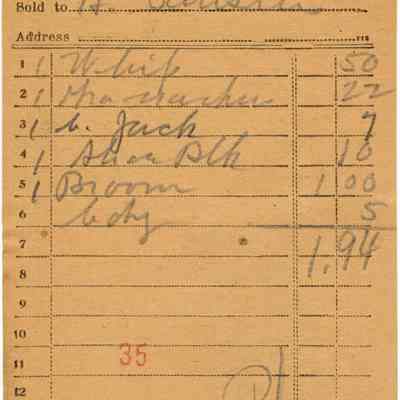 Sold to H.
Address
1 1 Whip 50
2 1 22
3 1 C. Jack 7
4 1 Shoe Blk 10
5 1 Broom 1 00
6 Cdy 5
7 1.94
8
9
10
11 35
12